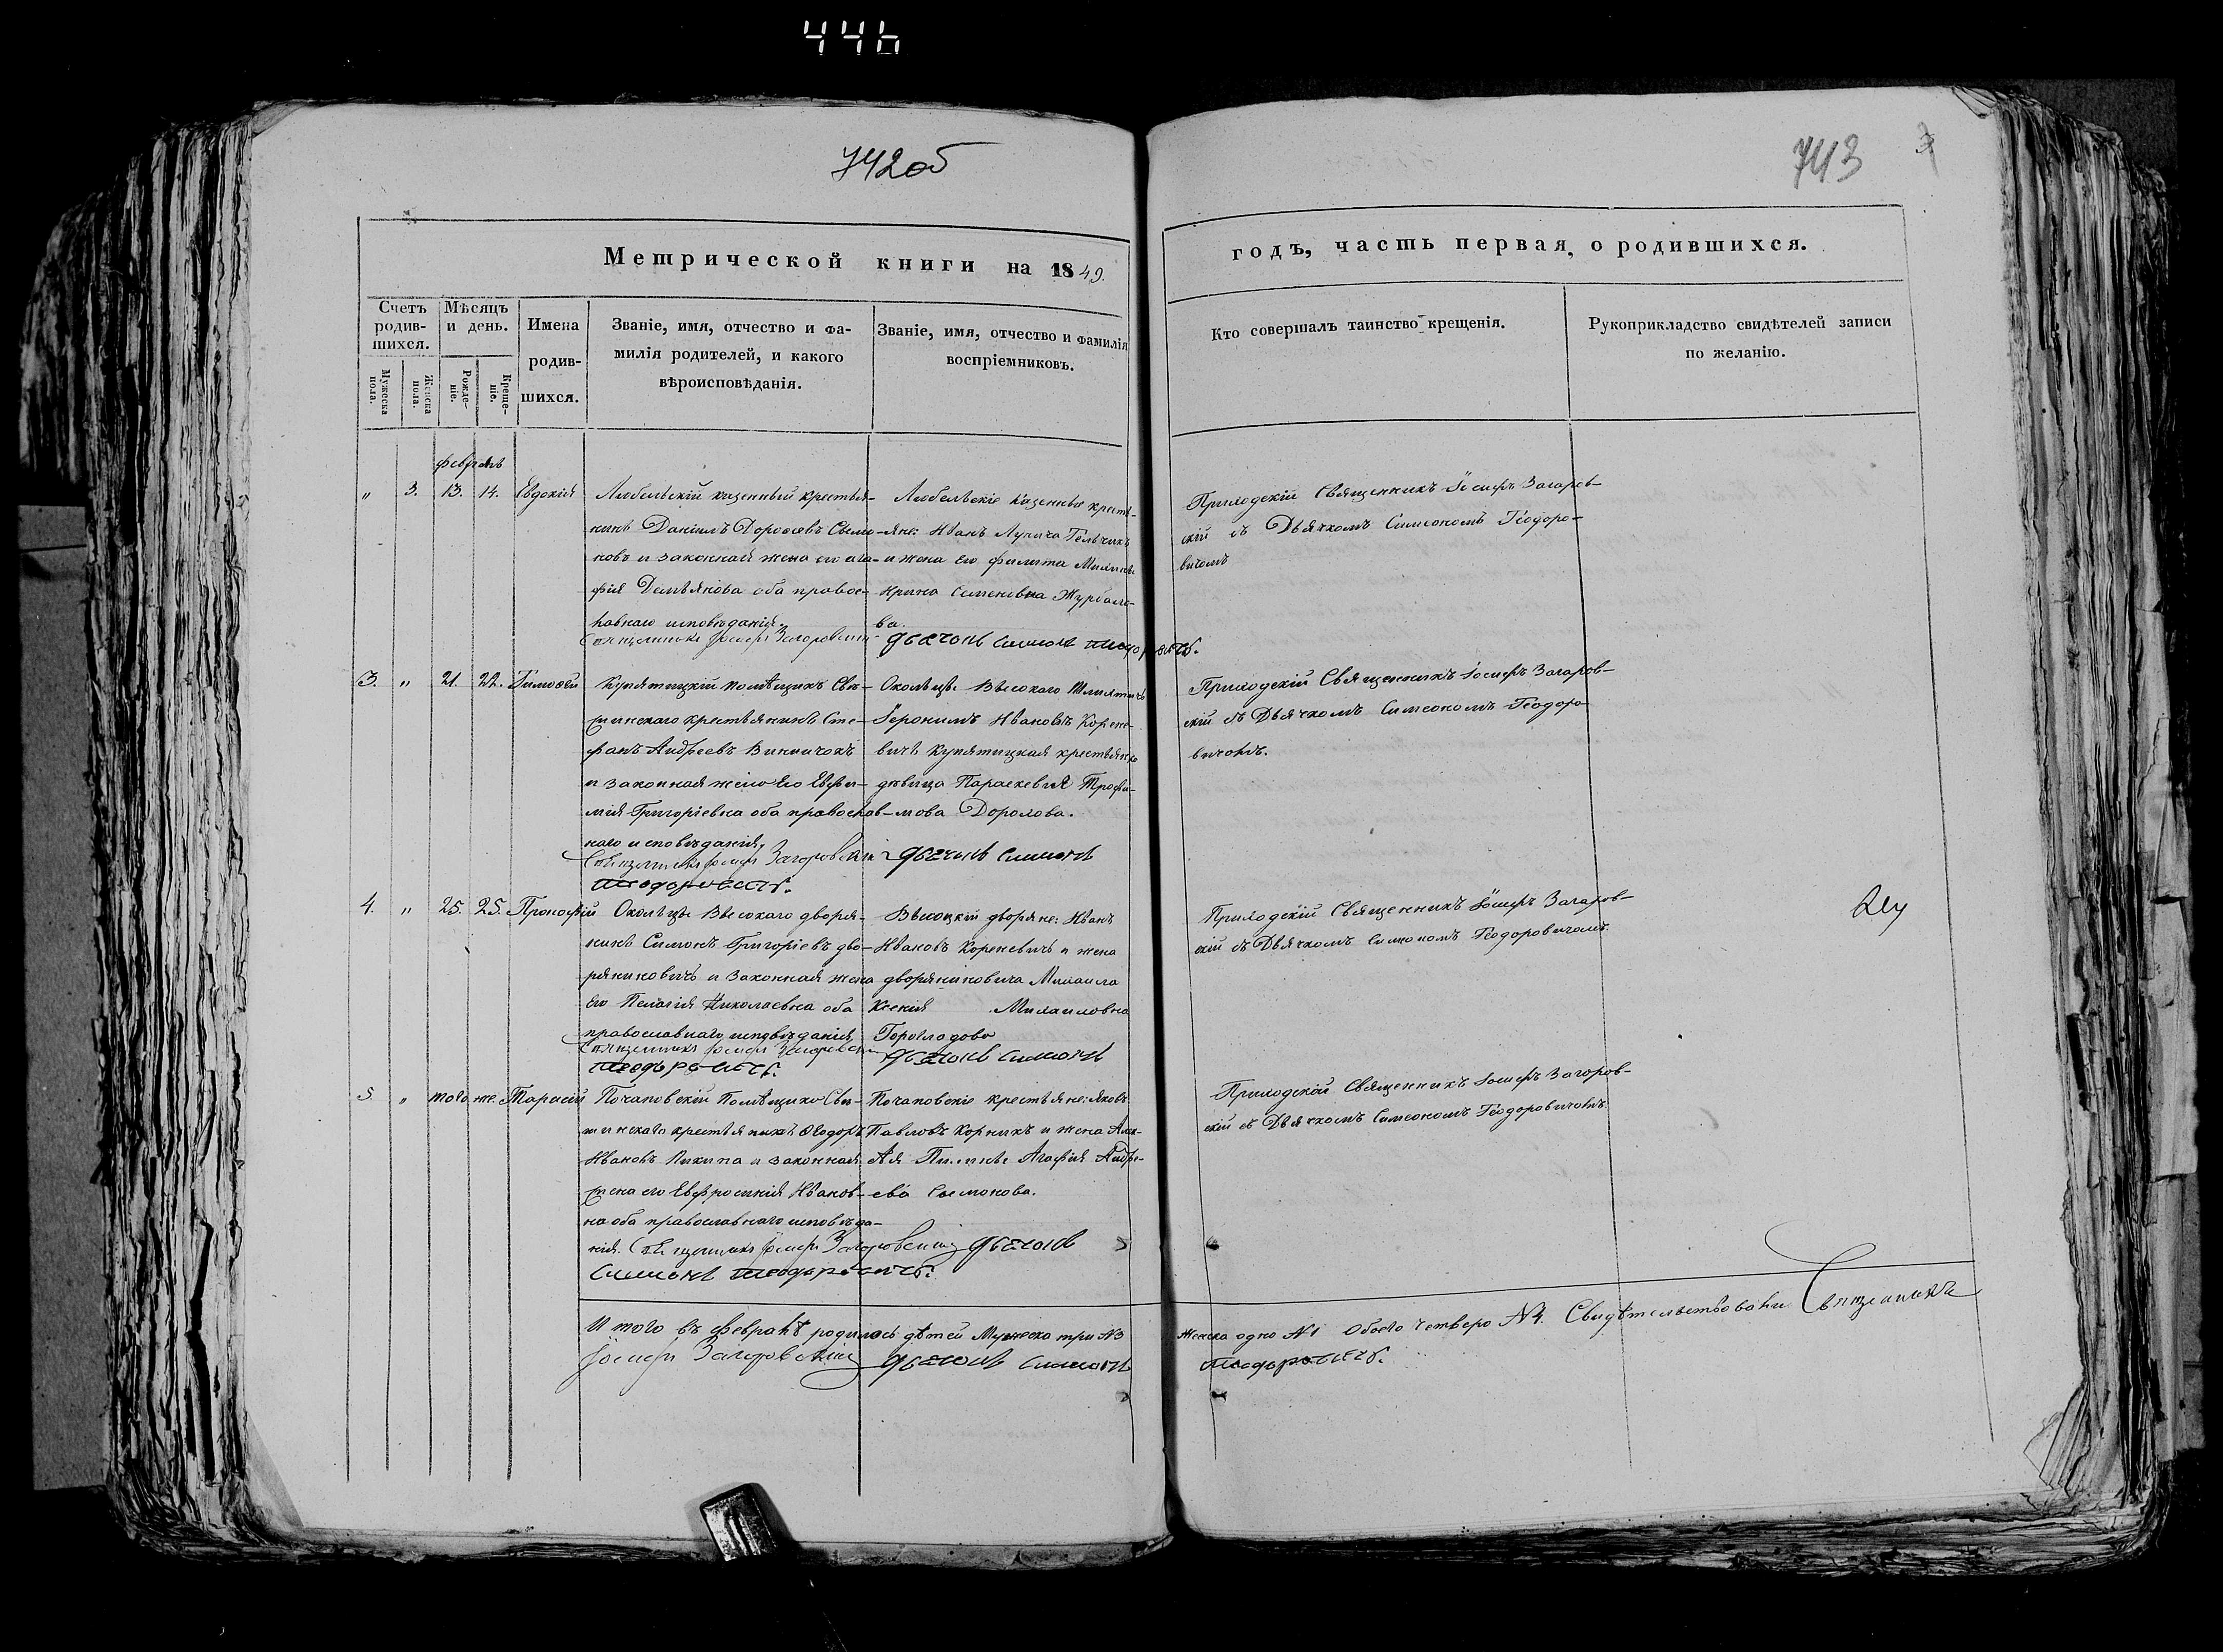 446
742об
743
Метрической книги на 1849.
годъ, часть первая, о родившихся.
Счетъ родив-шихся.
Мѣсяцъ и день.
Имена родив-шихся.
Званіе, имя, отчество и фа-
милія родителей, и какого
вѣроисповѣданія.
Званіе, имя, отчество и фамилія
воспріемниковъ.
Кто совершалъ таинство крещенія.
Рукоприкладство свидѣтелей записи
по желанію.
Мужеска пола.
Женска пола.
Рожде-ніе.
Креще-ніе.
февраль
" 3. 13. 14. Евдокія
Любельскій казенный крестья-
нинъ Даніилъ Дорофеевъ
новъ и законная жена его Ага-
фія Демьянова оба правос-
лавнаго исповѣданія.
Священникъ Іосифъ Загоровскій
Любельскіе казенные кресть-
яне: Иванъ
и жена его
Ирина Семеновна Журавле-
ва.
дьячокъ Симеонъ Теодоровичъ.
Приходскій Священникъ Іосифъ Загоров-
скій съ Дьячкомъ Симеономъ Теодоро-
вичомъ
3. " 21. 22. Тимофей
Купятицкій помѣщика Свѣ-
жинскаго крестьянинъ Сте-
фанъ Андреевъ Винничокъ
и законная жена Его Евфи-
мія Григоріевна оба православ-
наго исповѣданія,
Священникъ Іосифъ Загоровскій
Околицы Высокаго
Іеронимъ Ивановъ Корене-
вичъ Купятицкая крестьянка
дѣвица Параскевия Трофи-
мова Дорохова.
дьячокъ Симеонъ
Теодоровичъ.
Приходскій Священникъ Іосифъ Загоров-
скій съ Дьячкомъ Симеономъ Теодоро-
вичомъ.
4. " 25. 25. Прокофій
Околицы Высокаго дворя-
нинъ Симонъ Григоріевъ дво-
ряниновичъ и законная жена
его Пелагія Николаевна оба
православнаго исповѣданія
Священникъ Іосифъ Загоровскій
Высоцкій дворяне: Иванъ
Ивановъ Кореневичъ и жена
дворяниновича Михаила
Ксенія Михаиловна
дьячокъ Симеонъ
Теодоровичъ.
Приходскій Священникъ Іосифъ Загоров-
скій съ Дьячкомъ Симеономъ Теодоровичомъ.
5. " того же. Тарасий
Почаповскій Помѣщика Свѣ-
жинскаго крестьянинъ Ѳеодоръ
Ивановъ Пикула и законная
жена его Евфросинія Иванов-
на оба православнаго исповѣда-
нія. Священникъ Іосифъ Загоровскій дьячокъ
Симеонъ Теодоровичъ.
Почаповскіе крестьяне: Яковъ
Павловъ Корникъ и жена
Агафія Андре-
ева Симонова.
Приходскій Священникъ Іосифъ Загоров-
скій съ Дьячкомъ Симеономъ Теодоровичомъ
Итого въ февралѣ родилось дѣтей Мужеска три №3 Женска одно №1 Обоего четверо №4. Свидѣтельствовали Священникъ
Іосифъ Загоровскій дьячокъ Симеонъ Теодоровичъ.